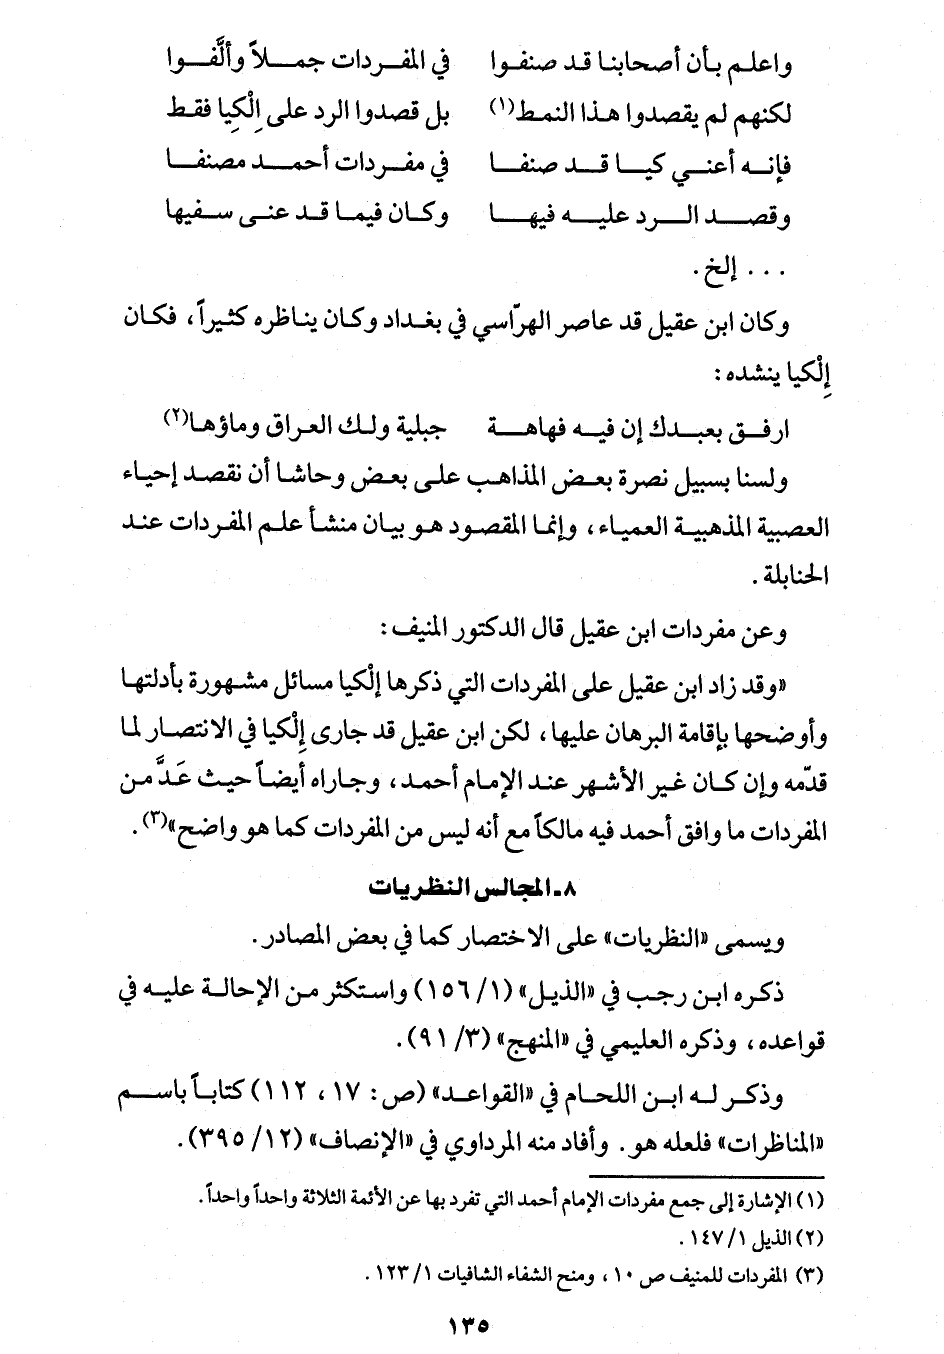 واعلم بأن أصحابنا قد صنفوا في المفردات جملاً وألَّفوا
لكنهم لم يقصدوا هذا النمط(١) بل قصدوا الرد على إِلْكِيا فقط
فإنه أعني كيا قد صنفا في مفردات أحمد مصنفا
وقصد الرد عليه فيها وكان فيما قد عنى سفيها
... إلخ.
وكان ابن عقيل قد عاصر الهرّاسي في بغداد وكان يناظره كثيراً، فكان
إِلْكيا ينشده:
ارفق بعبدك إن فيه فهاهة جبلية ولك العراق وماؤها(٢)
ولسنا بسبيل نصرة بعض المذاهب على بعض وحاشا أن نقصد إحياء
العصبية المذهبية العمياء، وإنما المقصود هو بيان منشأ علم المفردات عند
الحنابلة.
وعن مفردات ابن عقيل قال الدكتور المنيف:
«وقد زاد ابن عقيل على المفردات التي ذكرها إلْكيا مسائل مشهورة بأدلتها
وأوضحها بإقامة البرهان عليها، لكن ابن عقيل قد جارى إِلْكيا في الانتصار لما
قدّمه وإن كان غير الأشهر عند الإمام أحمد، وجاراه أيضاً حيث عَدَّ من
المفردات ما وافق أحمد فيه مالكاً مع أنه ليس من المفردات كما هو واضح»(٣).
٨ـ المجالس النظريات
ويسمى «النظريات» على الاختصار كما في بعض المصادر.
ذكره ابن رجب في «الذيل» (١/ ١٥٦) واستكثر من الإحالة عليه في
قواعده، وذكره العليمي في «المنهج» (٣/ ٩١).
وذكر له ابن اللحام في «القواعد» (ص: ١٧، ١١٢) كتاباً باسم
«المناظرات» فلعله هو. وأفاد منه المرداوي في «الإنصاف» (١٢/ ٣٩٥).
(١) الإشارة إلى جمع مفردات الإمام أحمد التي تفرد بها عن الأئمة الثلاثة واحداً واحداً.
(٢) الذيل ١/ ١٤٧.
(٣) المفردات للمنيف ص ١٠، ومنح الشفاء الشافيات ١/ ١٢٣.
١٣٥